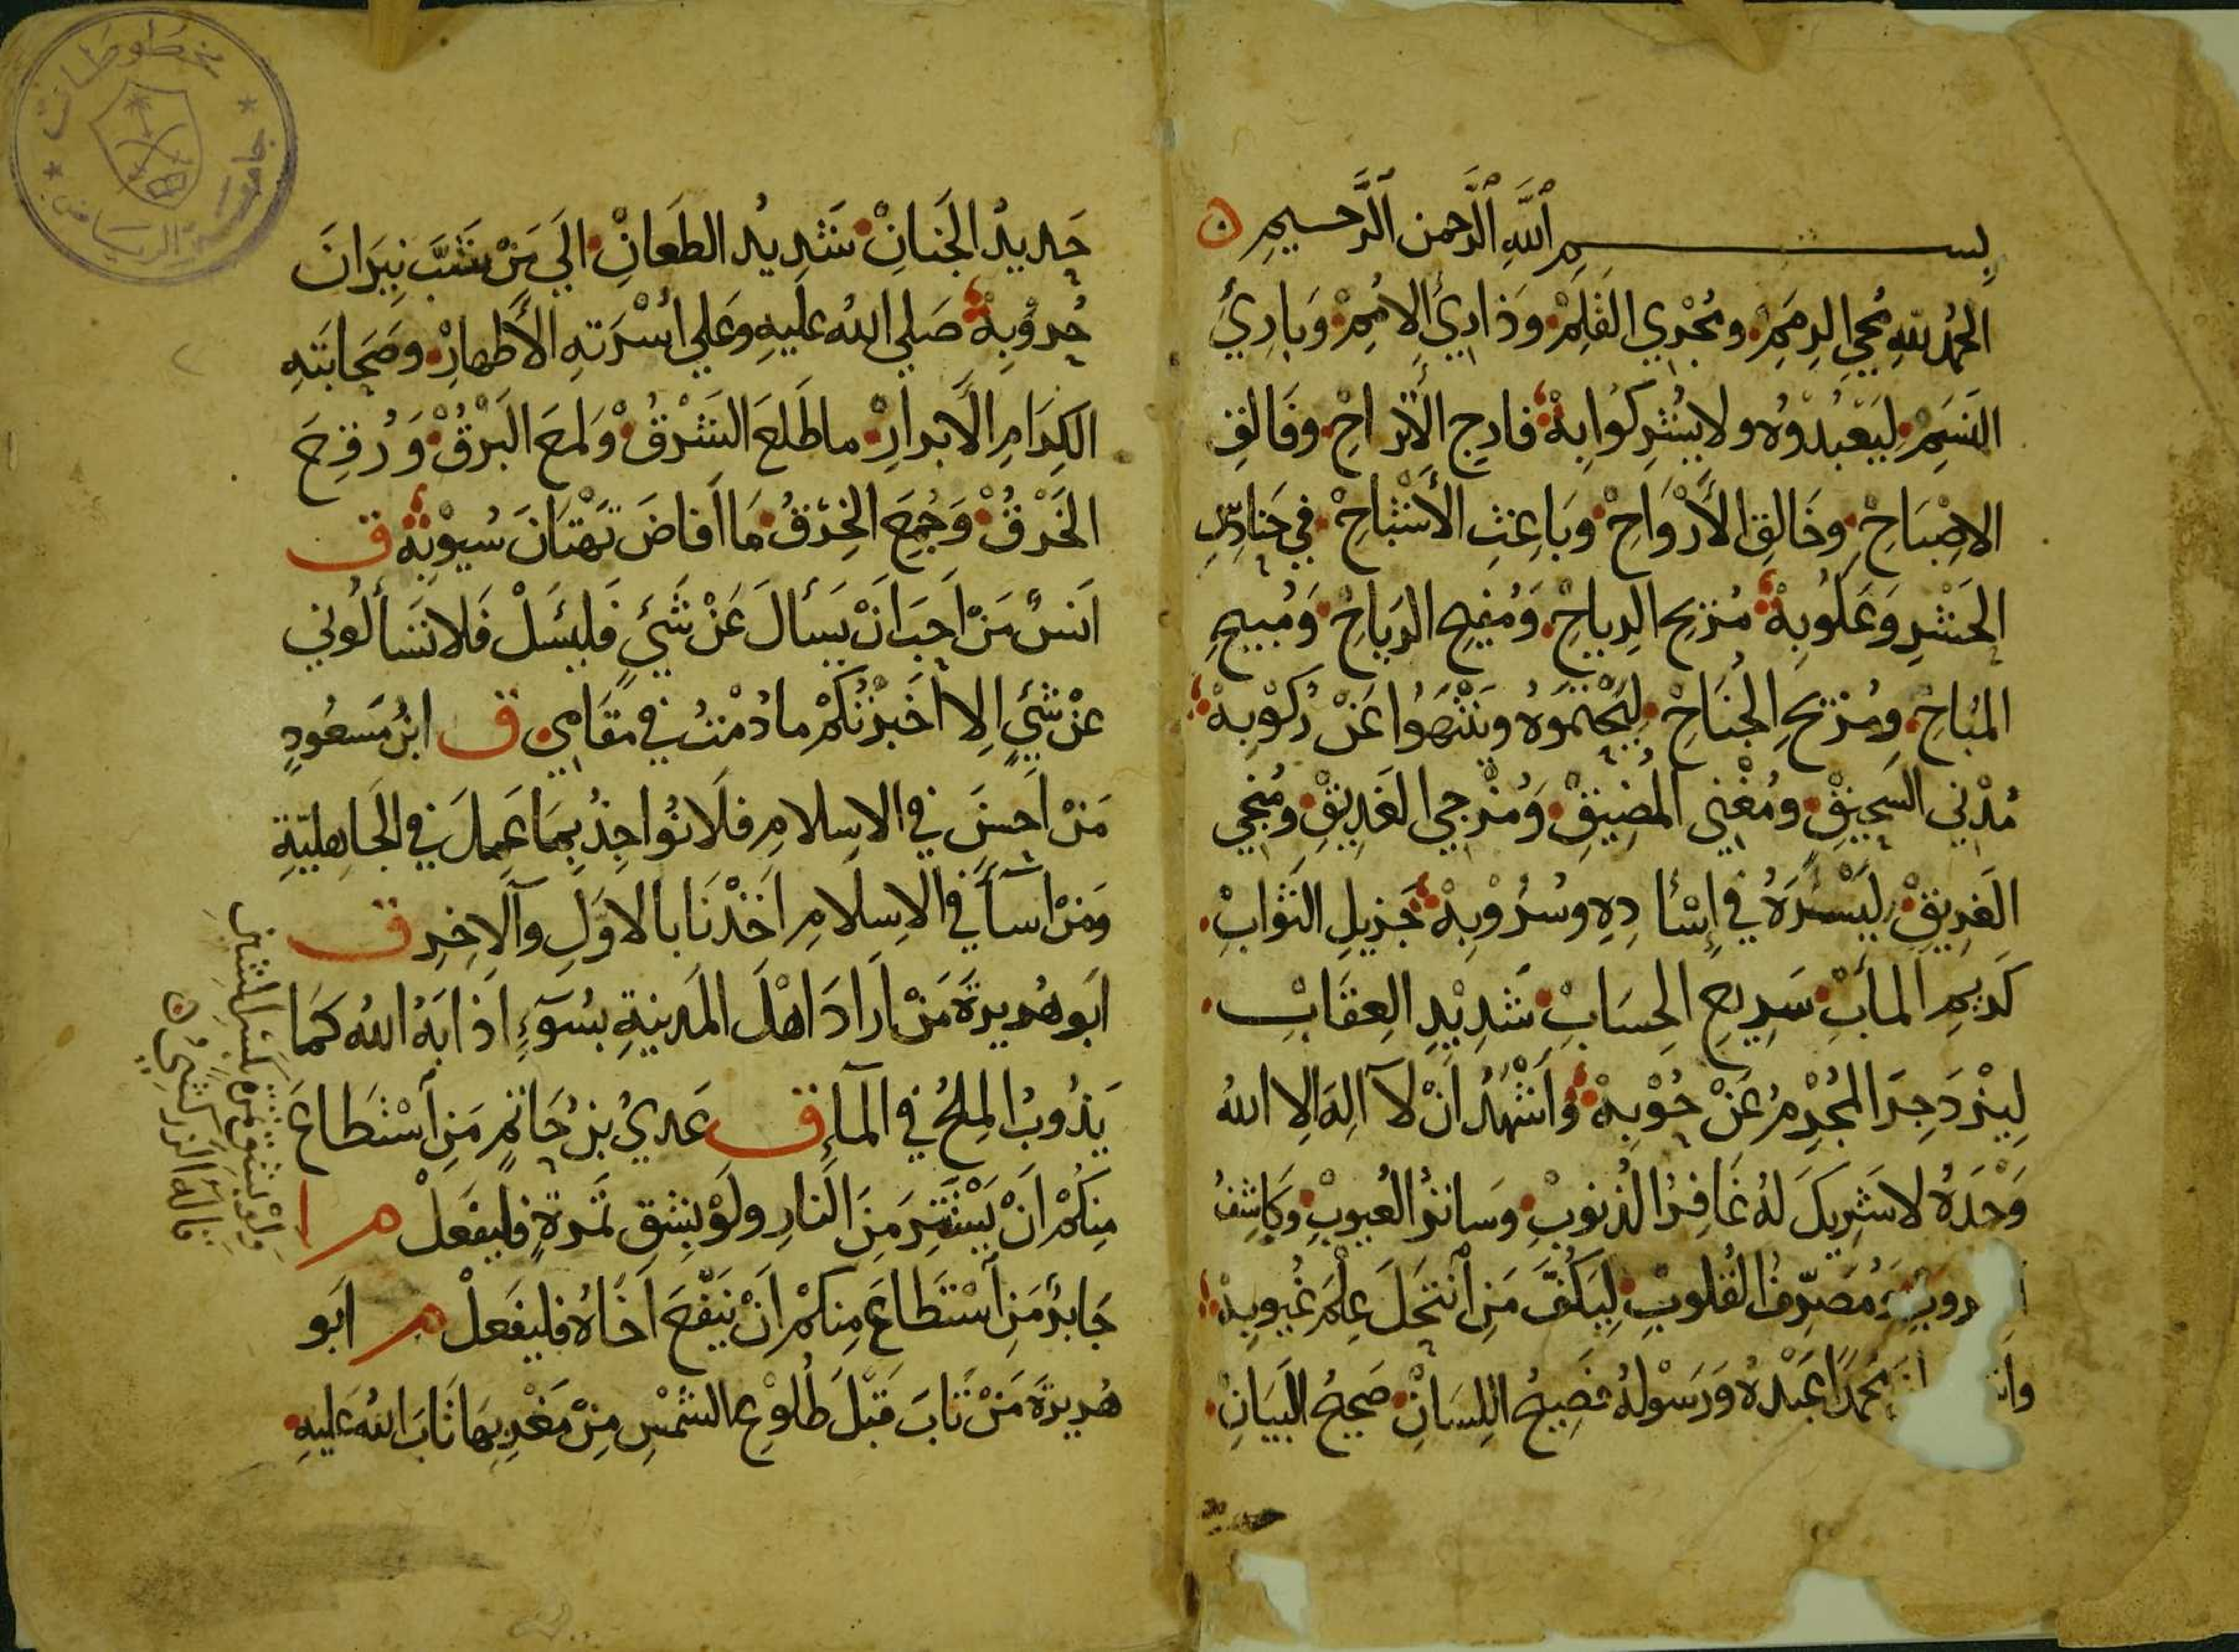 بسم الله الرحمن الرحيم
الحمد لله محيي الرمم ومجري القلم وذاريء الامم وباريء
النسم ليعبدوه ولا يشركوا به فارج الأتراح وفالق
الاصباح وخالق الأرواح وباعث الأشباح في حنادس
الحشر وعكوبه مزيح الرياح ومفيح الرياح ومبيح
المباح ومزيح الجناح ليحتموه وينتهوا عن ركوبه
مدني السحيق ومغني المضيق ومزجي الغريق ومنجي
الغريق ليسره في إسآده وسروبه جزيل الثواب
كريم المآب سريع الحساب شديد العقاب
لينزجر المجرم عن حوبه وأشهد أن لا اله الا الله
وحده لا شريك له غافر الذنوب وساتر العيوب وكاشف
ومصرف القلوب ليكف من انتحل علم غيوبه
محمدا عبده ورسوله فصيح اللسان صحيح البيان
حديد الجنان شديد الطعان الي من شب نيران
حروبه صلي الله عليه وعلي اسرته الأطهار وصحابته
الكرام الأبرار ما طلع الشرق ولمع البرق ورقع
الخرق وجمع الخرق ما افاض تهتان سيوبه ق
انس من احب ان يسأل عن شيء فليسئل فلا تسألوني
عن شيء الا اخبرتكم ما دمت في مقامي ق ابن مسعود
من احسن في الاسلام فلا نواخذ بما عمل في الجاهلية
ومن اسآ في الاسلام اخذنا بالاول والاخر ق
ابو هريرة من اراد اهل المدينة بسوء اذابه الله كما
يذوب الملح في المآء ق عدي بن حاتم من استطاع
منكم ان يستتر من النار ولو بشق تمرة فليفعل م
جابر من استطاع منكم ان ينفع اخاه فليفعل م ابو
هريرة من تاب قبل طلوع الشمس من مغربها تاب الله عليه
ولو بشق تمرة بكسر الشين
قاله الزركشي
مخطوطات
جامعة الرياض